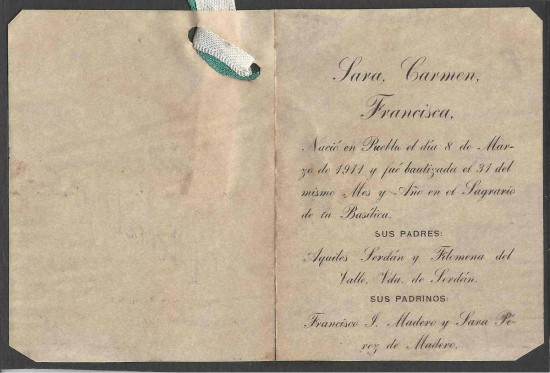 Sara, Carmen,
Francisca,
Nació en Puebla el día 8 de Mar-
zo de 1911 y fué bautizada el 31 del
mismo Mes y Año en el Sagrario
de la Basílica.
SUS PADRES:
Aquiles Serdán y Filomena del
Valle, Vda. de Serdán.
SUS PADRINOS:
Francisco I. Madero y Sara Pé-
rez de Madero.